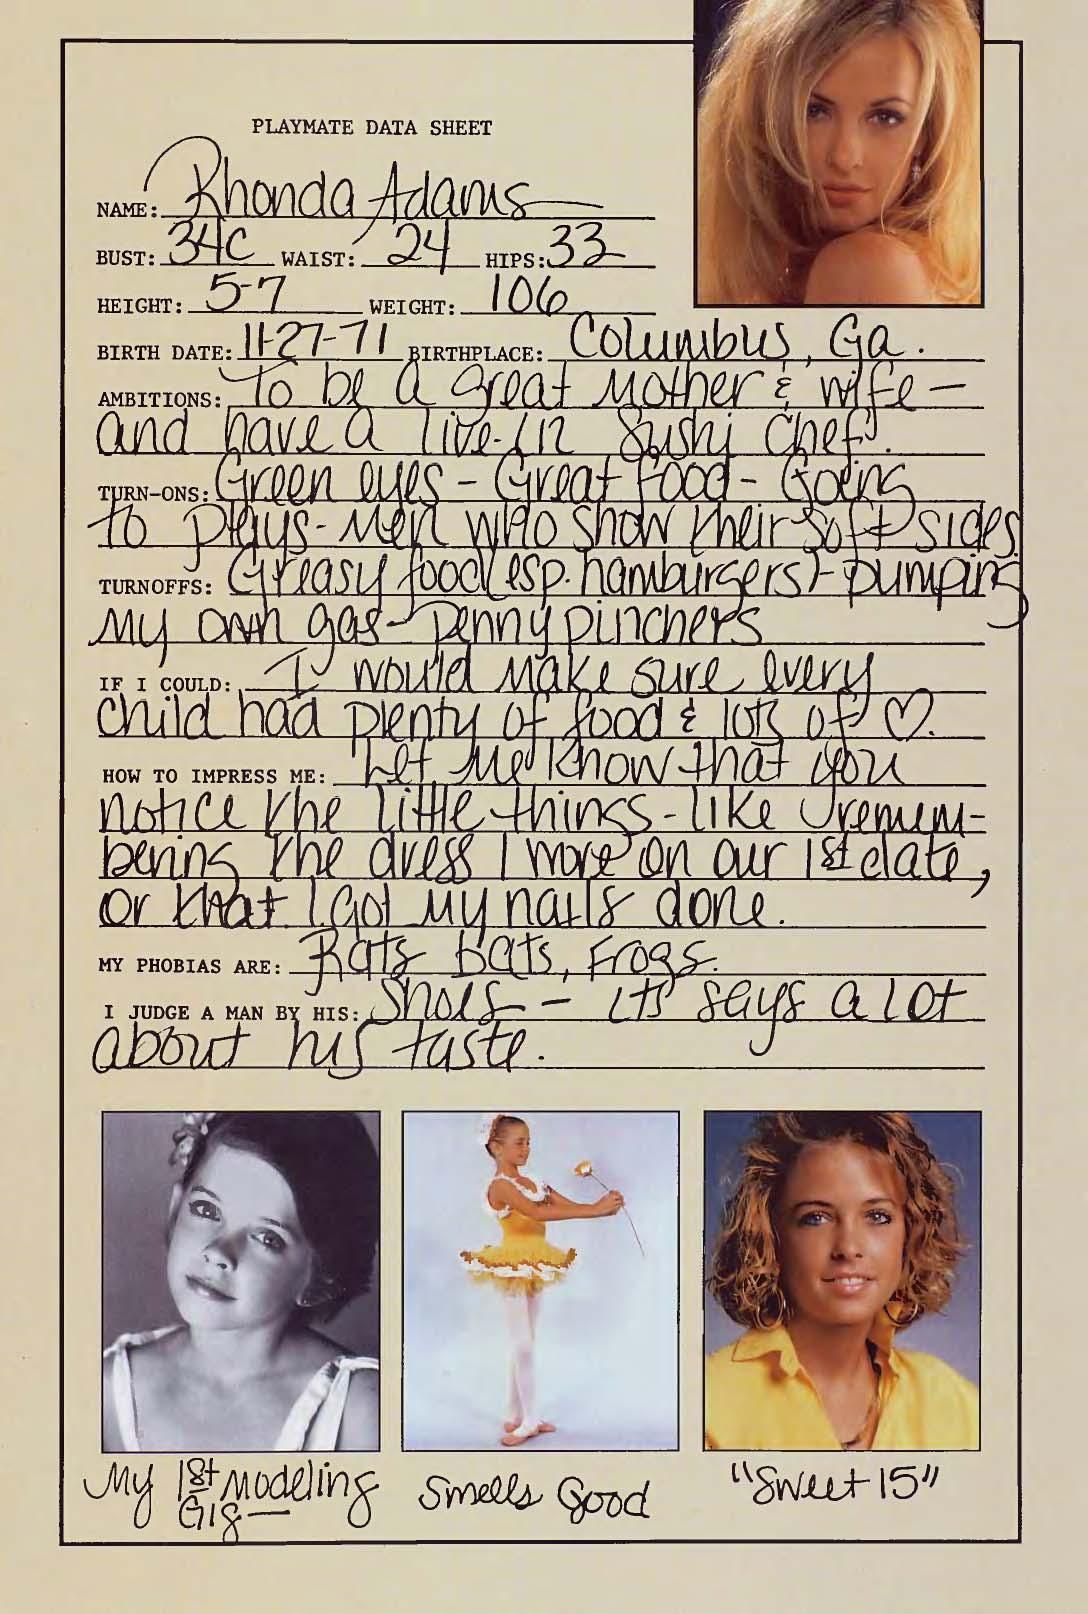 PLAYMATE DATA SHEET
NAME: Rhonda Adams
BUST: 34C WAIST: 24 HIPS: 33
HEIGHT: 5-7 WEIGHT: 106
BIRTH DATE: 11-27-71 BIRTHPLACE: Columbus, Ga.
AMBITIONS: To be a great Mother & wife -
and have a live-in Sushi Chef.
TURN-ONS: Green eyes - Great food - Going
to plays - Men who show their soft sides
TURNOFFS: Greasy food (esp. hamburgers) - pumping
my own gas - penny pinchers
IF I COULD: I would make sure every
child had plenty of food & lots of ♡.
HOW TO IMPRESS ME: Let me know that you
notice the little things - like remem-
bering the dress I wore on our 1st date,
or that I got my nails done.
MY PHOBIAS ARE: Rats, bats, frogs.
I JUDGE A MAN BY HIS: Shoes - its says a lot
about his taste.
My 1st Modeling
Gig -
Smells Good
"Sweet 15"